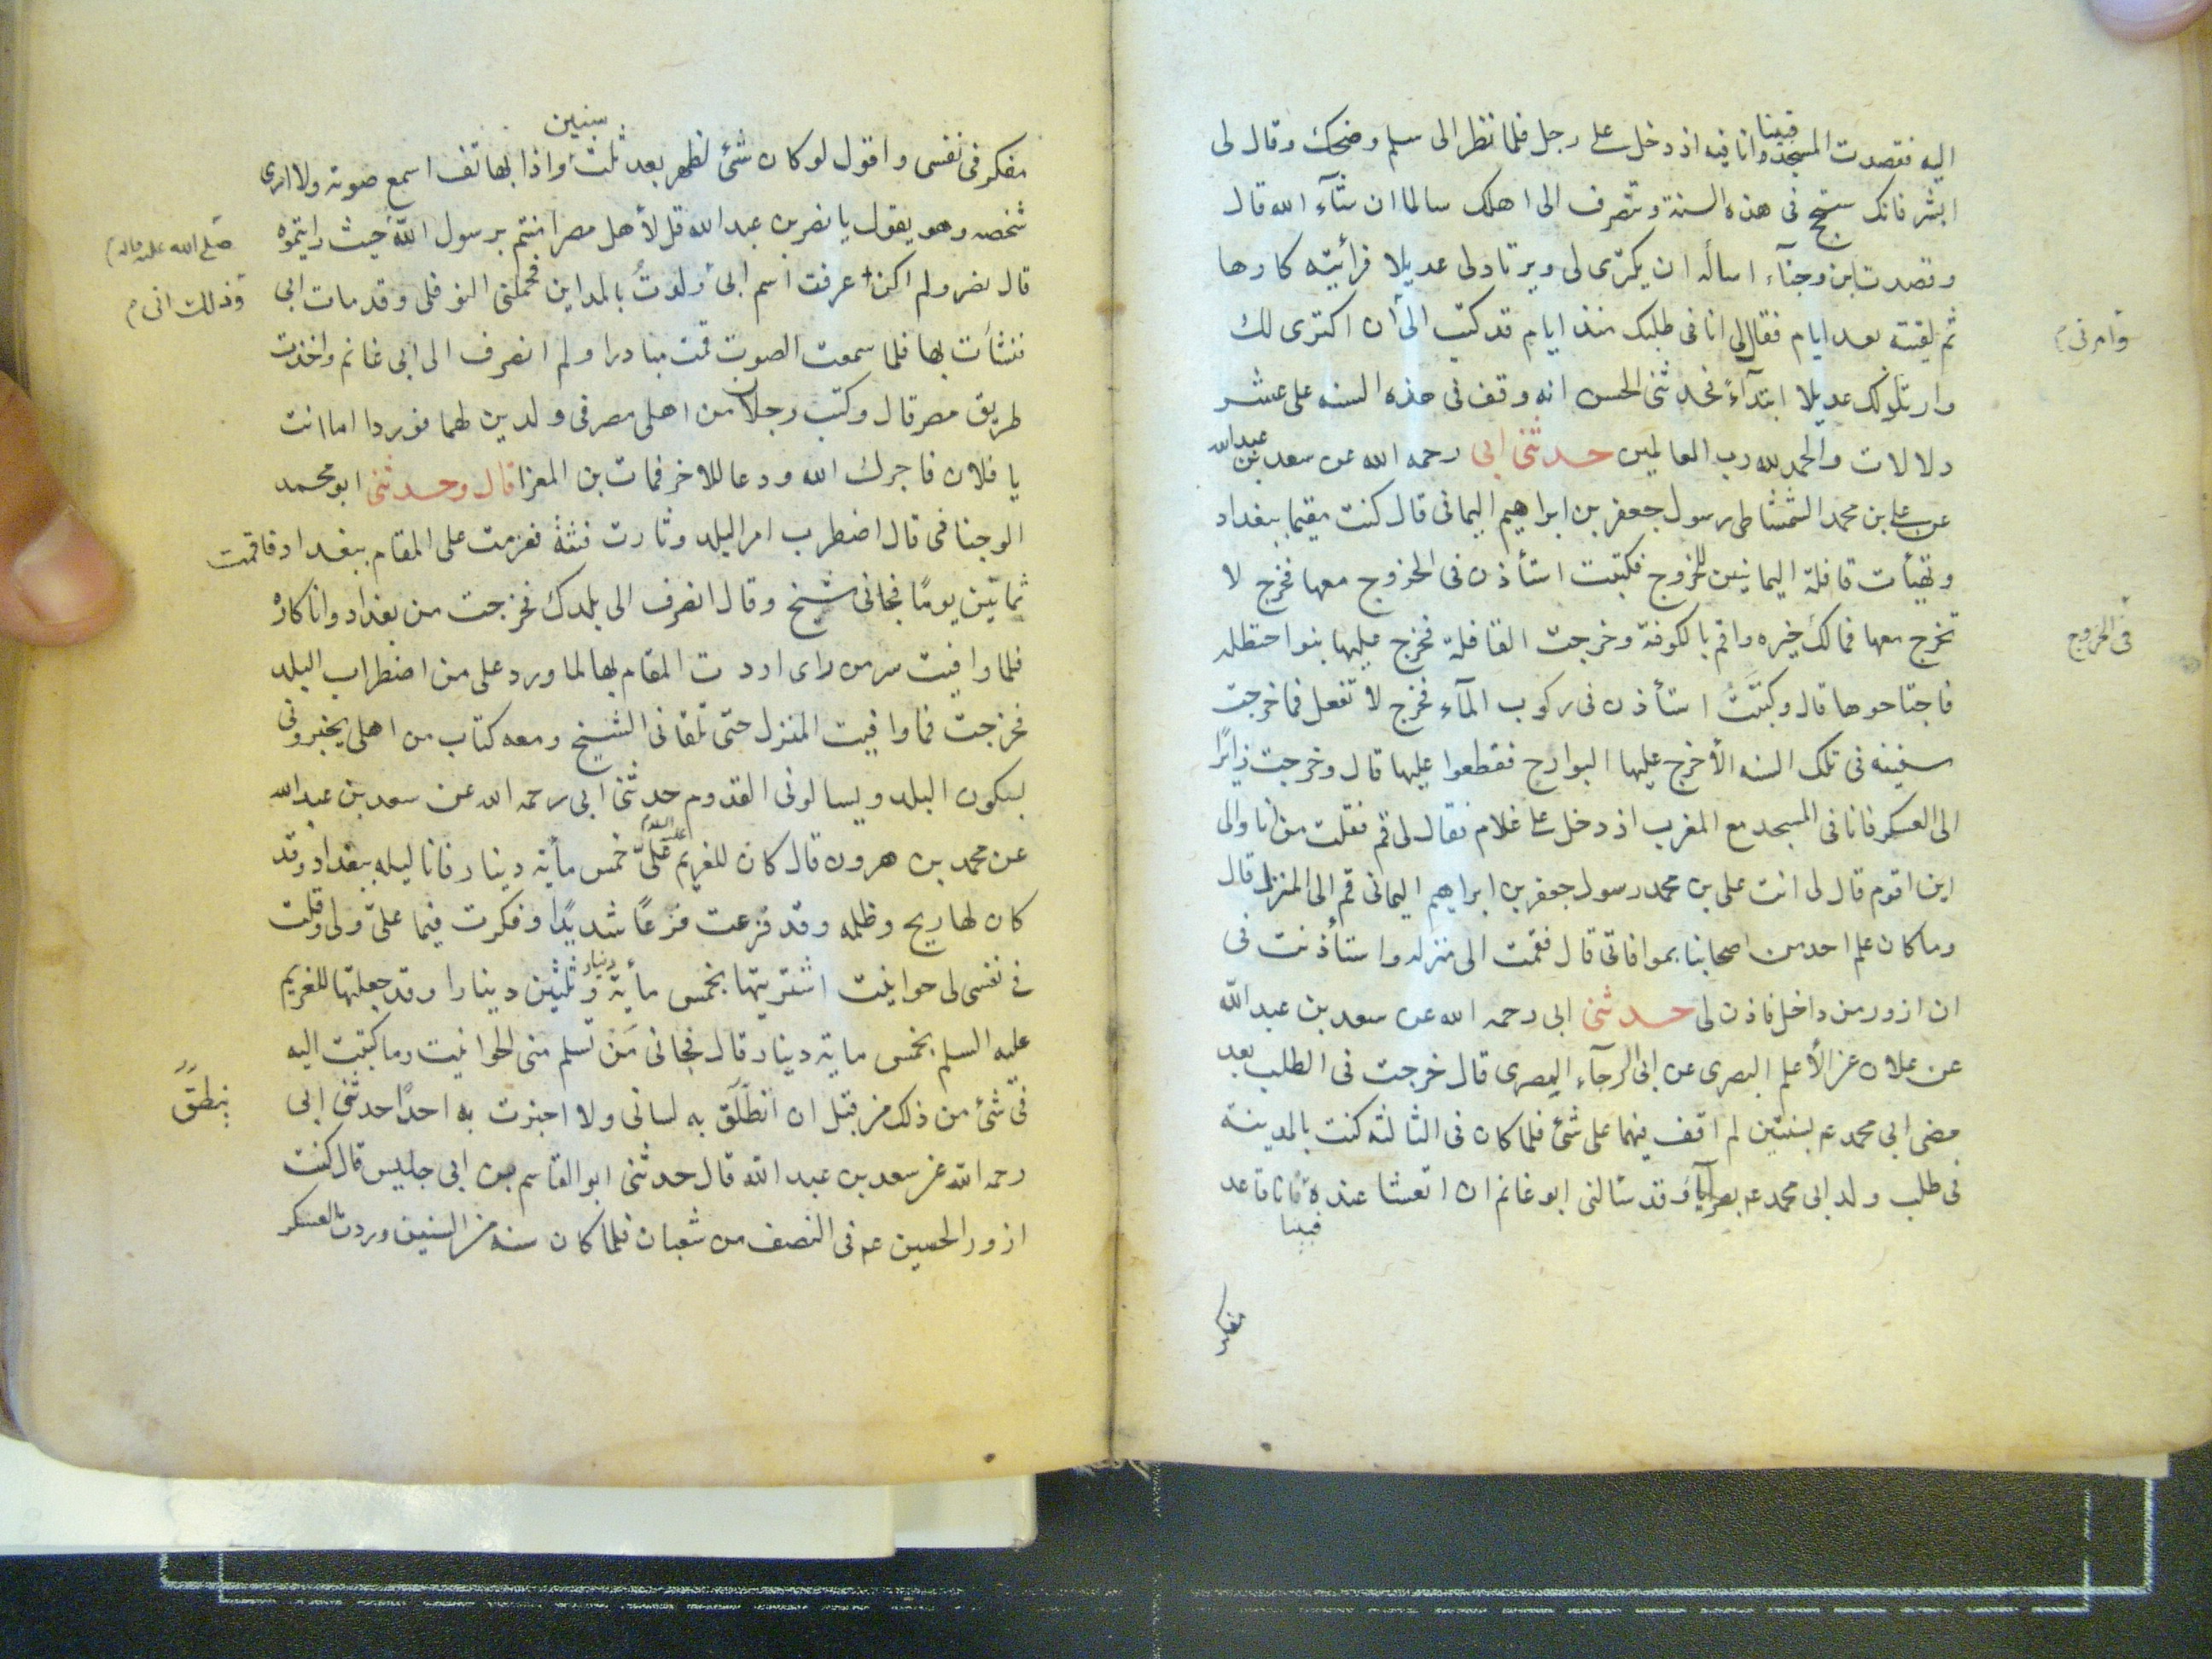 اليه فقصدت المسجد وانا فيه اذ دخل على رجل فلما نظر الى سلم وضحك وقال لى
فبينا
ابشر فانك ستحج فى هذه السنة وتنصرف الى اهلك سالما ان شآء الله قال
وقصدت ابن وجنآء اسأله ان يكترى لى ويرتاد لى عديلا فرأيته كارها
ثم لقيته بعد ايام فقال لى انا فى طلبك منذ ايام قد كتب الى أن اكترى لك
وامرنى
وارتاد لك عديلا ابتدآءً فحدثنى الحسن انه وقف فى هذه السنه على عشر
دلالات والحمد لله رب العالمين حدثنى ابى رحمه الله عن سعد بن عبد الله
عن على بن محمد الشمشاطى رسول جعفر بن ابراهيم اليمانى قال كنت مقيما ببغداد
وتهيأت قافلة اليمانيين للخروج فكتبت استأذن فى الخروج معها فخرج لا
تخرج معها فمالك خيره واقم بالكوفة وخرجت القافلة فخرج عليها بنو احنظله
فى الخروج
فاجتاحوها قال وكتبتُ استأذن فى ركوب المآء فخرج لا تفعل فما خرجت
سفينه فى تلك السنه الا خرج عليها البوارح فقطعوا عليها قال وخرجت زائرًا
الى العسكر فانا فى المسجد مع المغرب اذ دخل على غلام فقال لى قم فقلت من انا والى
اين اقوم قال لى انت على بن محمد رسول جعفر بن ابراهيم اليمانى قم الى المنزل قال
وما كان علم احد من اصحابنا بموافاتى قال فقمت الى منزله واستأذنت فى
ان ازور من داخل فاذن لى حدثنى ابى رحمه الله عن سعد بن عبد الله
عن علان عن الأعلم البصرى عن ابى الرجآء المصرى قال خرجت فى الطلب بعد
مضى ابى محمد عم بسنتين لم اقف فيهما على شئ فلما كان فى الثالثة كنت بالمدينة
فى طلب ولد ابى محمد عم بصرياء وقد سألنى ابو غانم ان اتعشا عنده فانا قاعد
فبينا
مفكر
مفكر فى نفسى واقول لو كان شئ لظهر بعد ثلث واذا بهاتف اسمع صوته ولا ارى
سنين
شخصه وهو يقول يا نصر بن عبد الله قل لأهل مصر امنتم برسول الله حيث رايتموه
صلى الله عليه واله
قال نصر ولم اكن عرفت اسم ابى ولدتُ بالمداين فحملنى النوفلى وقد مات ابى
وذلك انى
فنشأت بها فلما سمعت الصوت قمت مبادرا ولم انصرف الى ابى غانم واخذت
طريق مصر قال وكتب رجلان من اهل مصر فى ولدين لهما فوردا اما انت
يا فلان فاجرك الله ودعا للاخر فمات بن المعزا قال وحدثنى ابو محمد
الوجنا فى قال اضطرب امر البلد وثارت فتنة فعزمت على المقام ببغداد فاقمت
ثمانين يومًا فجانى شيخ وقال انصرف الى بلدك فخرجت من بغداد وانا كاره
فلما وافيت سر من راى اردت المقام بها لما ورد على من اضطراب البلد
فخرجت فما وافيت المنزل حتى تلقانى الشيخ ومعه كتاب من اهلى يخبرونى
بسكون البلد ويسالونى القدوم حدثنى ابى رحمه الله عن سعد بن عبد الله
عن محمد بن هرون قال كان للغريم عليه السلام علىّ خمس مأية دينار فانا ليله ببغداد وقد
كان لها ريح وظلمه وقد فزعت فزعًا شديدًا وفكرت فيما علىّ ولى وقلت
فى نفسى لى حوانيت اشتريتها بخمس مأية دينار وثلثين دينارا وقد جعلتها للغريم
عليه السلم بخمس ماية دينار قال فجانى مَن تسلم منى الحوانيت وما كتبت اليه
فى شئ من ذلك من قبل ان انطلق به لسانى ولا اخبرت به احدًا حدثنى ابى
ينطق
رحمه الله عن سعد بن عبد الله قال حدثنى ابو القاسم بن ابى جليس قال كنت
ازور الحسين عم فى النصف من شعبان فلما كان سنه من السنين وردت العسكر